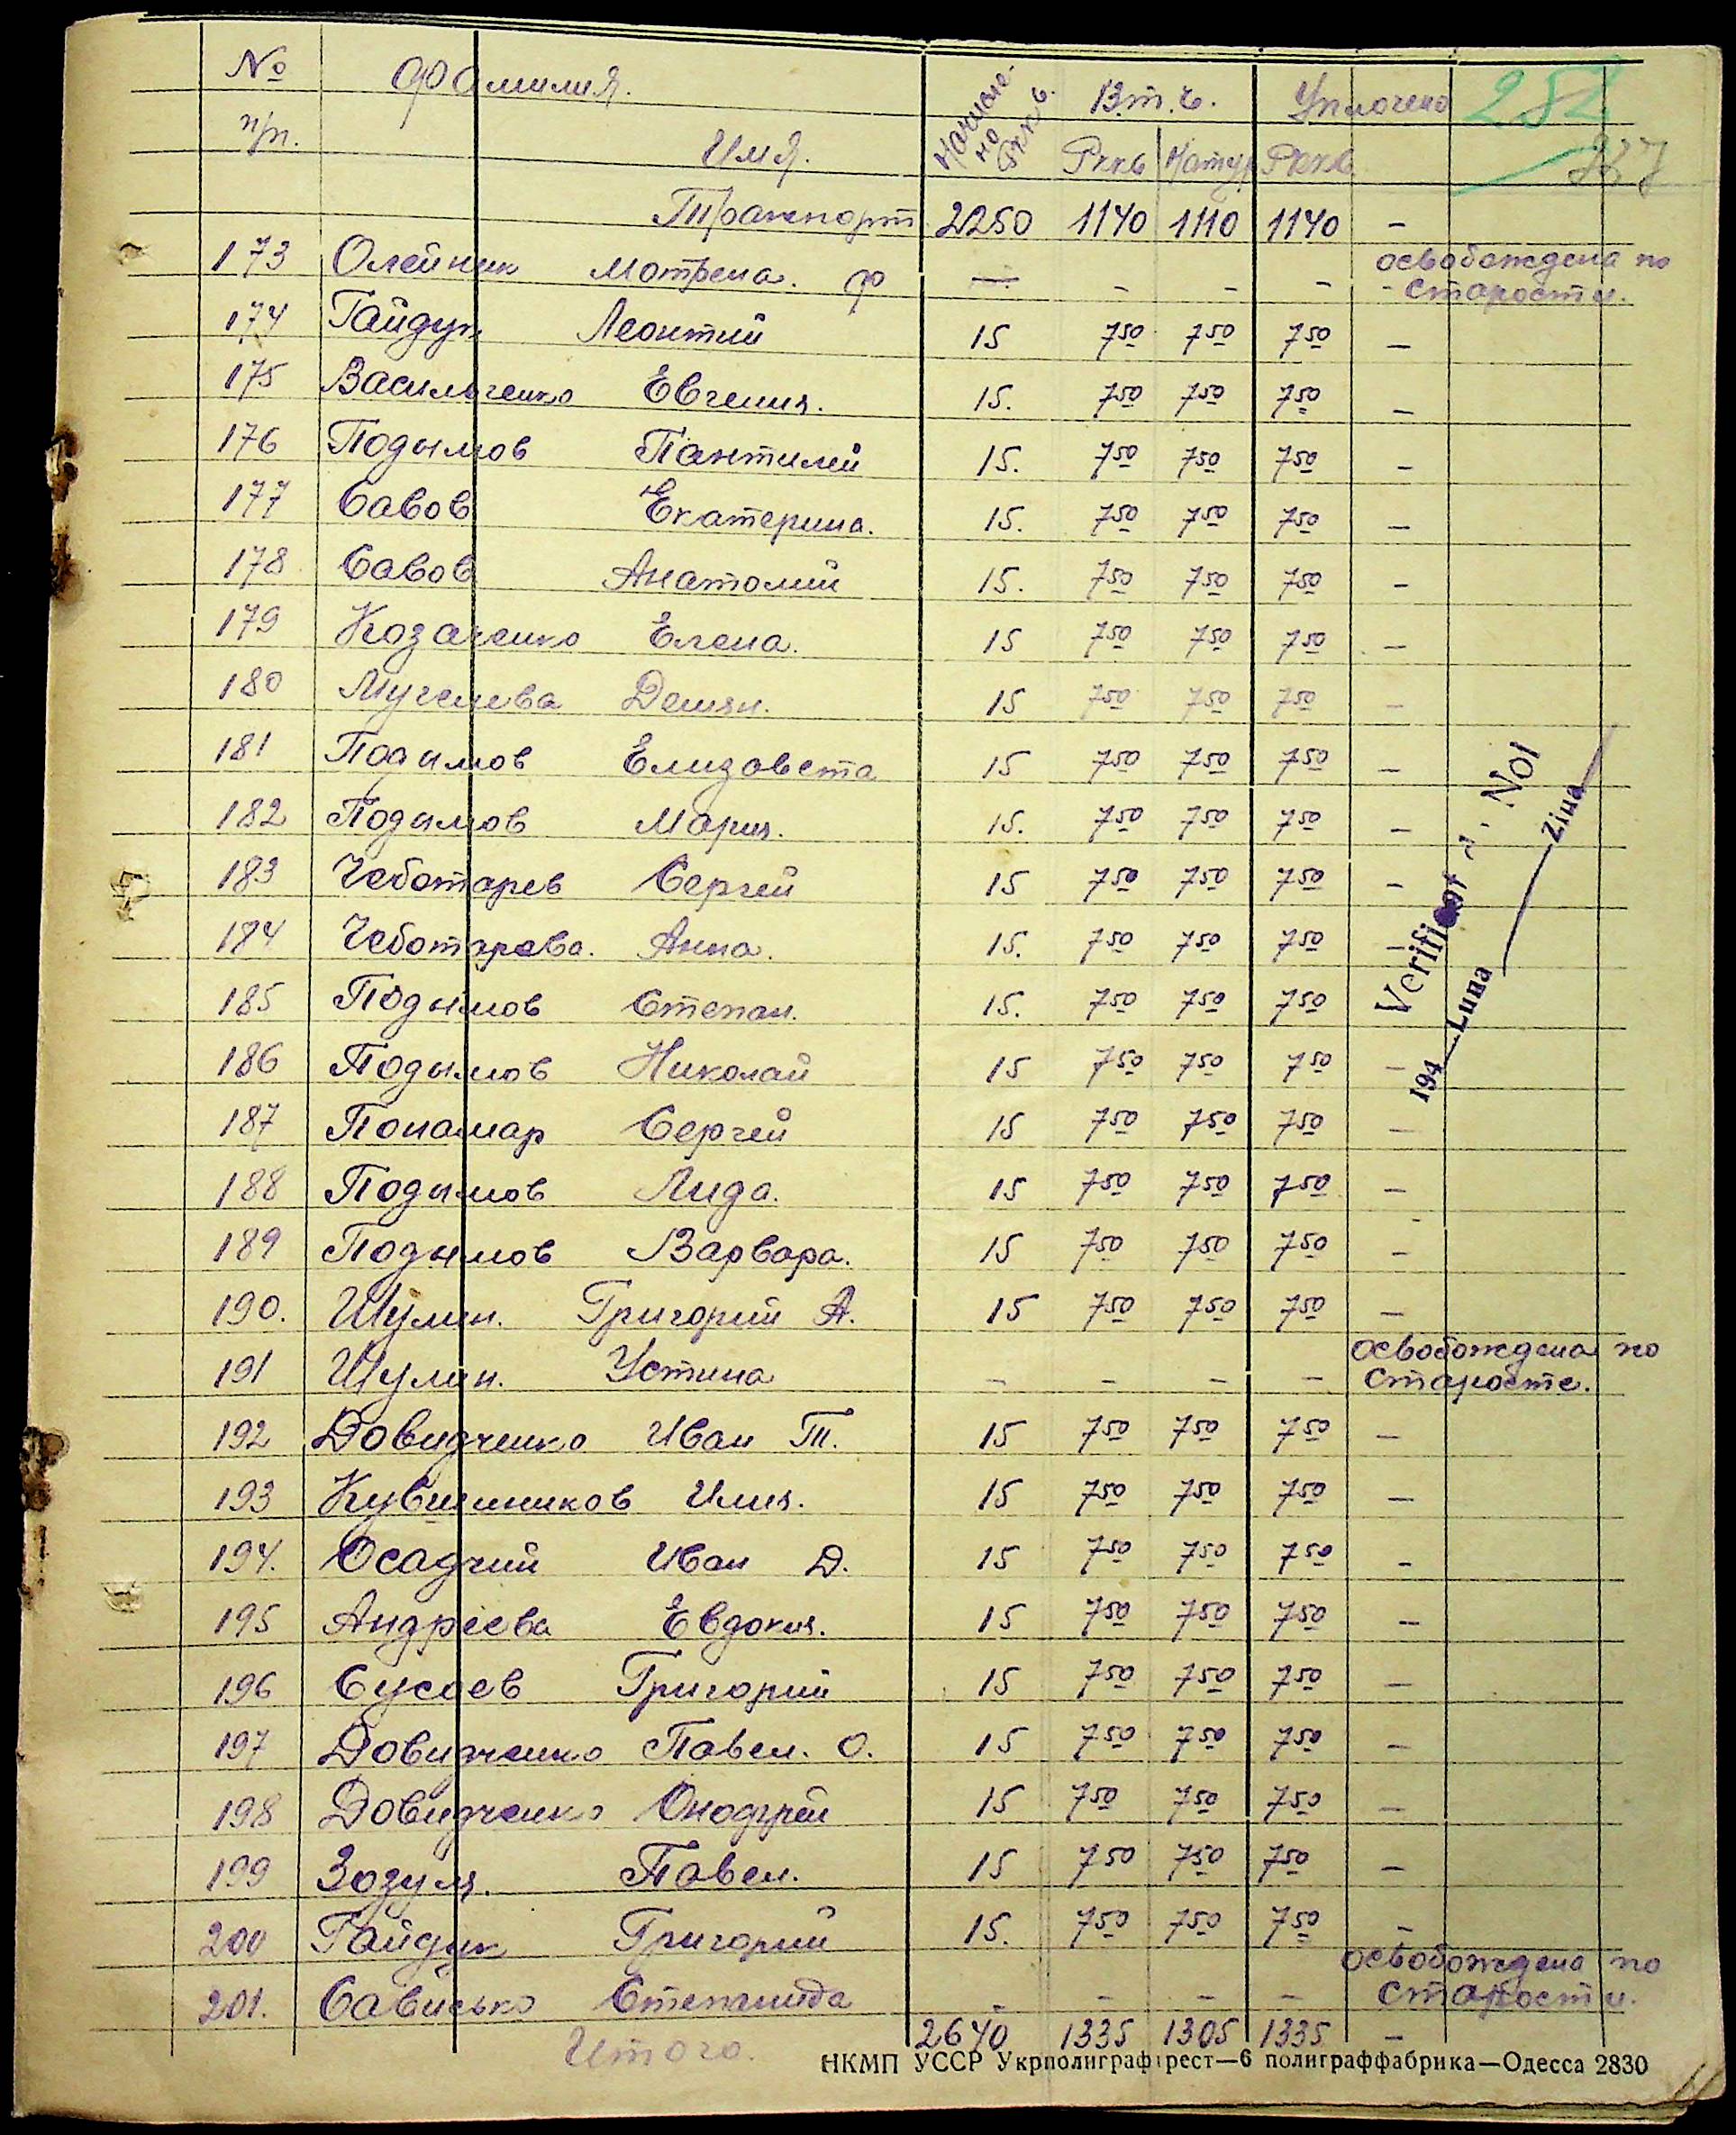 № Фамилия. Начисле- В т.ч. Уплочено 252
п/п. Имя. но Рккв. Рккв Натур Рккв
Транспорт 2250 1140 1110 1140 –
173 Олейник Мотрена. Ф — – – – освобождена по
- старости.
174 Гайдук Леонтий 15 7 50 7 50 7 50 –
175 Васильченко Евгения. 15. 7 50 7 50 7 50 –
176 Подымов Пантилей 15. 7 50 7 50 7 50 –
177 Савов Екатерина. 15. 7 50 7 50 7 50 –
178 Савов Анатолий 15. 7 50 7 50 7 50 –
179 Козаченко Елена. 15 7 50 7 50 7 50 –
180 Демян. 15 7 50 7 50 7 50 –
181 Подымов Елизовета 15 7 50 7 50 7 50 –
182 Подымов Мария. 15. 7 50 7 50 7 50 –
183 Чеботарев Сергей 15 7 50 7 50 7 50 –
184 Чеботарева. Анна. 15. 7 50 7 50 7 50 –
185 Подымов Степан. 15. 7 50 7 50 7 50
186 Подымов Николай 15 7 50 7 50 7 50 –
187 Понамар Сергей 15 7 50 7 50 7 50 –
188 Подымов Лида. 15 7 50 7 50 7 50 –
189 Подымов Варвара. 15 7 50 7 50 7 50 –
190. Шулин. Григорий А. 15 7 50 7 50 7 50 –
191 Шулин. Устина – – – – освобождена по
старосте.
192 Довидченко Иван Т. 15 7 50 7 50 7 50 –
193 Кувшинников Илия. 15 7 50 7 50 7 50 –
194. Осадчий Иван Д. 15 7 50 7 50 7 50 –
195 Андреева Евдокия. 15 7 50 7 50 7 50 –
196 Сусоев Григорий 15 7 50 7 50 7 50 –
197 Довидченко Павел. О. 15 7 50 7 50 7 50 –
198 Довидченко Онофрей 15 7 50 7 50 7 50 –
199 Зозуля. Павел. 15 7 50 7 50 7 50 –
200 Гайдук Григорий 15. 7 50 7 50 7 50 –
освобождена по
201. Степанида – – – – старости.
Итого. 2640 1335 1305 1335 –
Verificat Nol
194 Luna Ziua
НКМП УССР Укрполиграфтрест—6 полиграффабрика—Одесса 2830